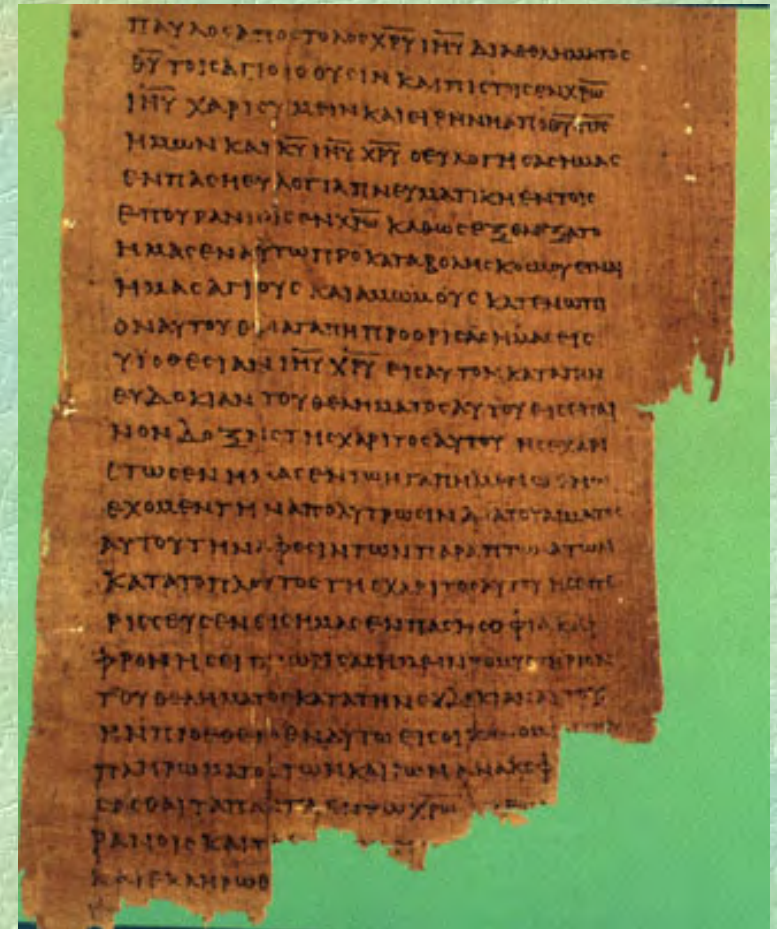 ΠΑΥΛΟΣ ΑΠΟΣΤΟΛΟΣ ΧΡΥ ΙΗΥ ΔΙΑ ΘΕΛΗΜΑΤΟΣ
ΘΥ ΤΟΙΣ ΑΓΙΟΙΣ ΟΥΣΙΝ ΚΑΙ ΠΙΣΤΟΙΣ ΕΝ ΧΡΩ
ΙΗΥ ΧΑΡΙΣ ΥΜΕΙΝ ΚΑΙ ΕΙΡΗΝΗ ΑΠΟ ΘΥ ΠΡΣ
ΗΜΩΝ ΚΑΙ ΚΥ ΙΗΥ ΧΡΥ Ο ΕΥΛΟΓΗΣΑΣ ΗΜΑΣ
ΕΝ ΠΑΣΗ ΕΥΛΟΓΙΑ ΠΝΕΥΜΑΤΙΚΗ ΕΝ ΤΟΙΣ
ΕΠΟΥΡΑΝΙΟΙΣ ΕΝ ΧΡΩ ΚΑΘΩΣ ΕΞΕΛΕΞΑΤΟ
ΗΜΑΣ ΕΝ ΑΥΤΩ ΠΡΟ ΚΑΤΑΒΟΛΗΣ ΚΟΣΜΟΥ ΕΙΝΑΙ
ΗΜΑΣ ΑΓΙΟΥΣ ΚΑΙ ΑΜΩΜΟΥΣ ΚΑΤΕΝΩΠΙ
ΟΝ ΑΥΤΟΥ ΕΝ ΑΓΑΠΗ ΠΡΟΟΡΙΣΑΣ ΗΜΑΣ ΕΙΣ
ΥΙΟΘΕΣΙΑΝ ΙΗΥ ΧΡΥ ΕΙΣ ΑΥΤΟΝ ΚΑΤΑ ΤΗΝ
ΕΥΔΟΚΙΑΝ ΤΟΥ ΘΕΛΗΜΑΤΟΣ ΑΥΤΟΥ ΕΙΣ ΕΠΑΙ
ΝΟΝ ΔΟΞΗΣ ΤΗΣ ΧΑΡΙΤΟΣ ΑΥΤΟΥ ΗΣ ΕΧΑΡΙ
ΕΝ ΤΩ
ΕΧΟΜΕΝ ΤΗΝ ΑΠΟΛΥΤΡΩΣΙΝ ΔΙΑ ΤΟΥ ΑΙΜΑΤΟΣ
ΑΥΤΟΥ ΤΗΝ ΑΦΕΣΙΝ ΤΩΝ ΠΑΡΑΠΤΩΜΑΤΩΝ
ΚΑΤΑ ΤΟ ΠΛΟΥΤΟΣ ΤΗΣ ΧΑΡΙΤΟΣ ΑΥΤΟΥ ΗΣ ΕΠΕ
ΡΙΣΣΕΥΣΕΝ ΕΙΣ ΗΜΑΣ ΕΝ ΠΑΣΗ ΣΟΦΙΑ ΚΑΙ
ΦΡΟΝΗΣΕΙ ΓΝΩΡΙΣΑΣ ΗΜΕΙΝ ΤΟ ΜΥΣΤΗΡΙΟΝ
ΤΟΥ ΘΕΛΗΜΑΤΟΣ ΚΑΤΑ ΤΗΝ ΕΥΔΟΚΙΑΝ
ΗΝ ΠΡΟΕΘΕΤΟ ΕΝ ΑΥΤΩ ΕΙΣ
ΠΛΗΡΩΜΑΤΟΣ ΤΩΝ ΚΑΙΡΩΝ ΑΝΑΚΕΦ
ΤΑ ΠΑΝΤΑ ΕΝ ΤΩ ΧΡΩ
ΡΑΝΟΙΣ ΚΑΙ Τ
ΚΑΙ ΕΚΛΗΡΩΘ